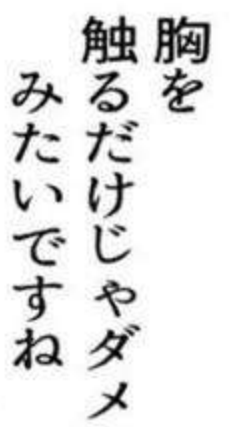 胸を
触るだけじゃダメ
みたいですね